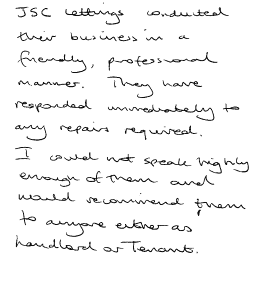 JSC Lettings conducted
their business in a
friendly, professional
manner. They have
responded immediately to
any repairs required.
I could not speak highly
enough of them and
would recommend them
to anyone either as
Landlord or Tenant.